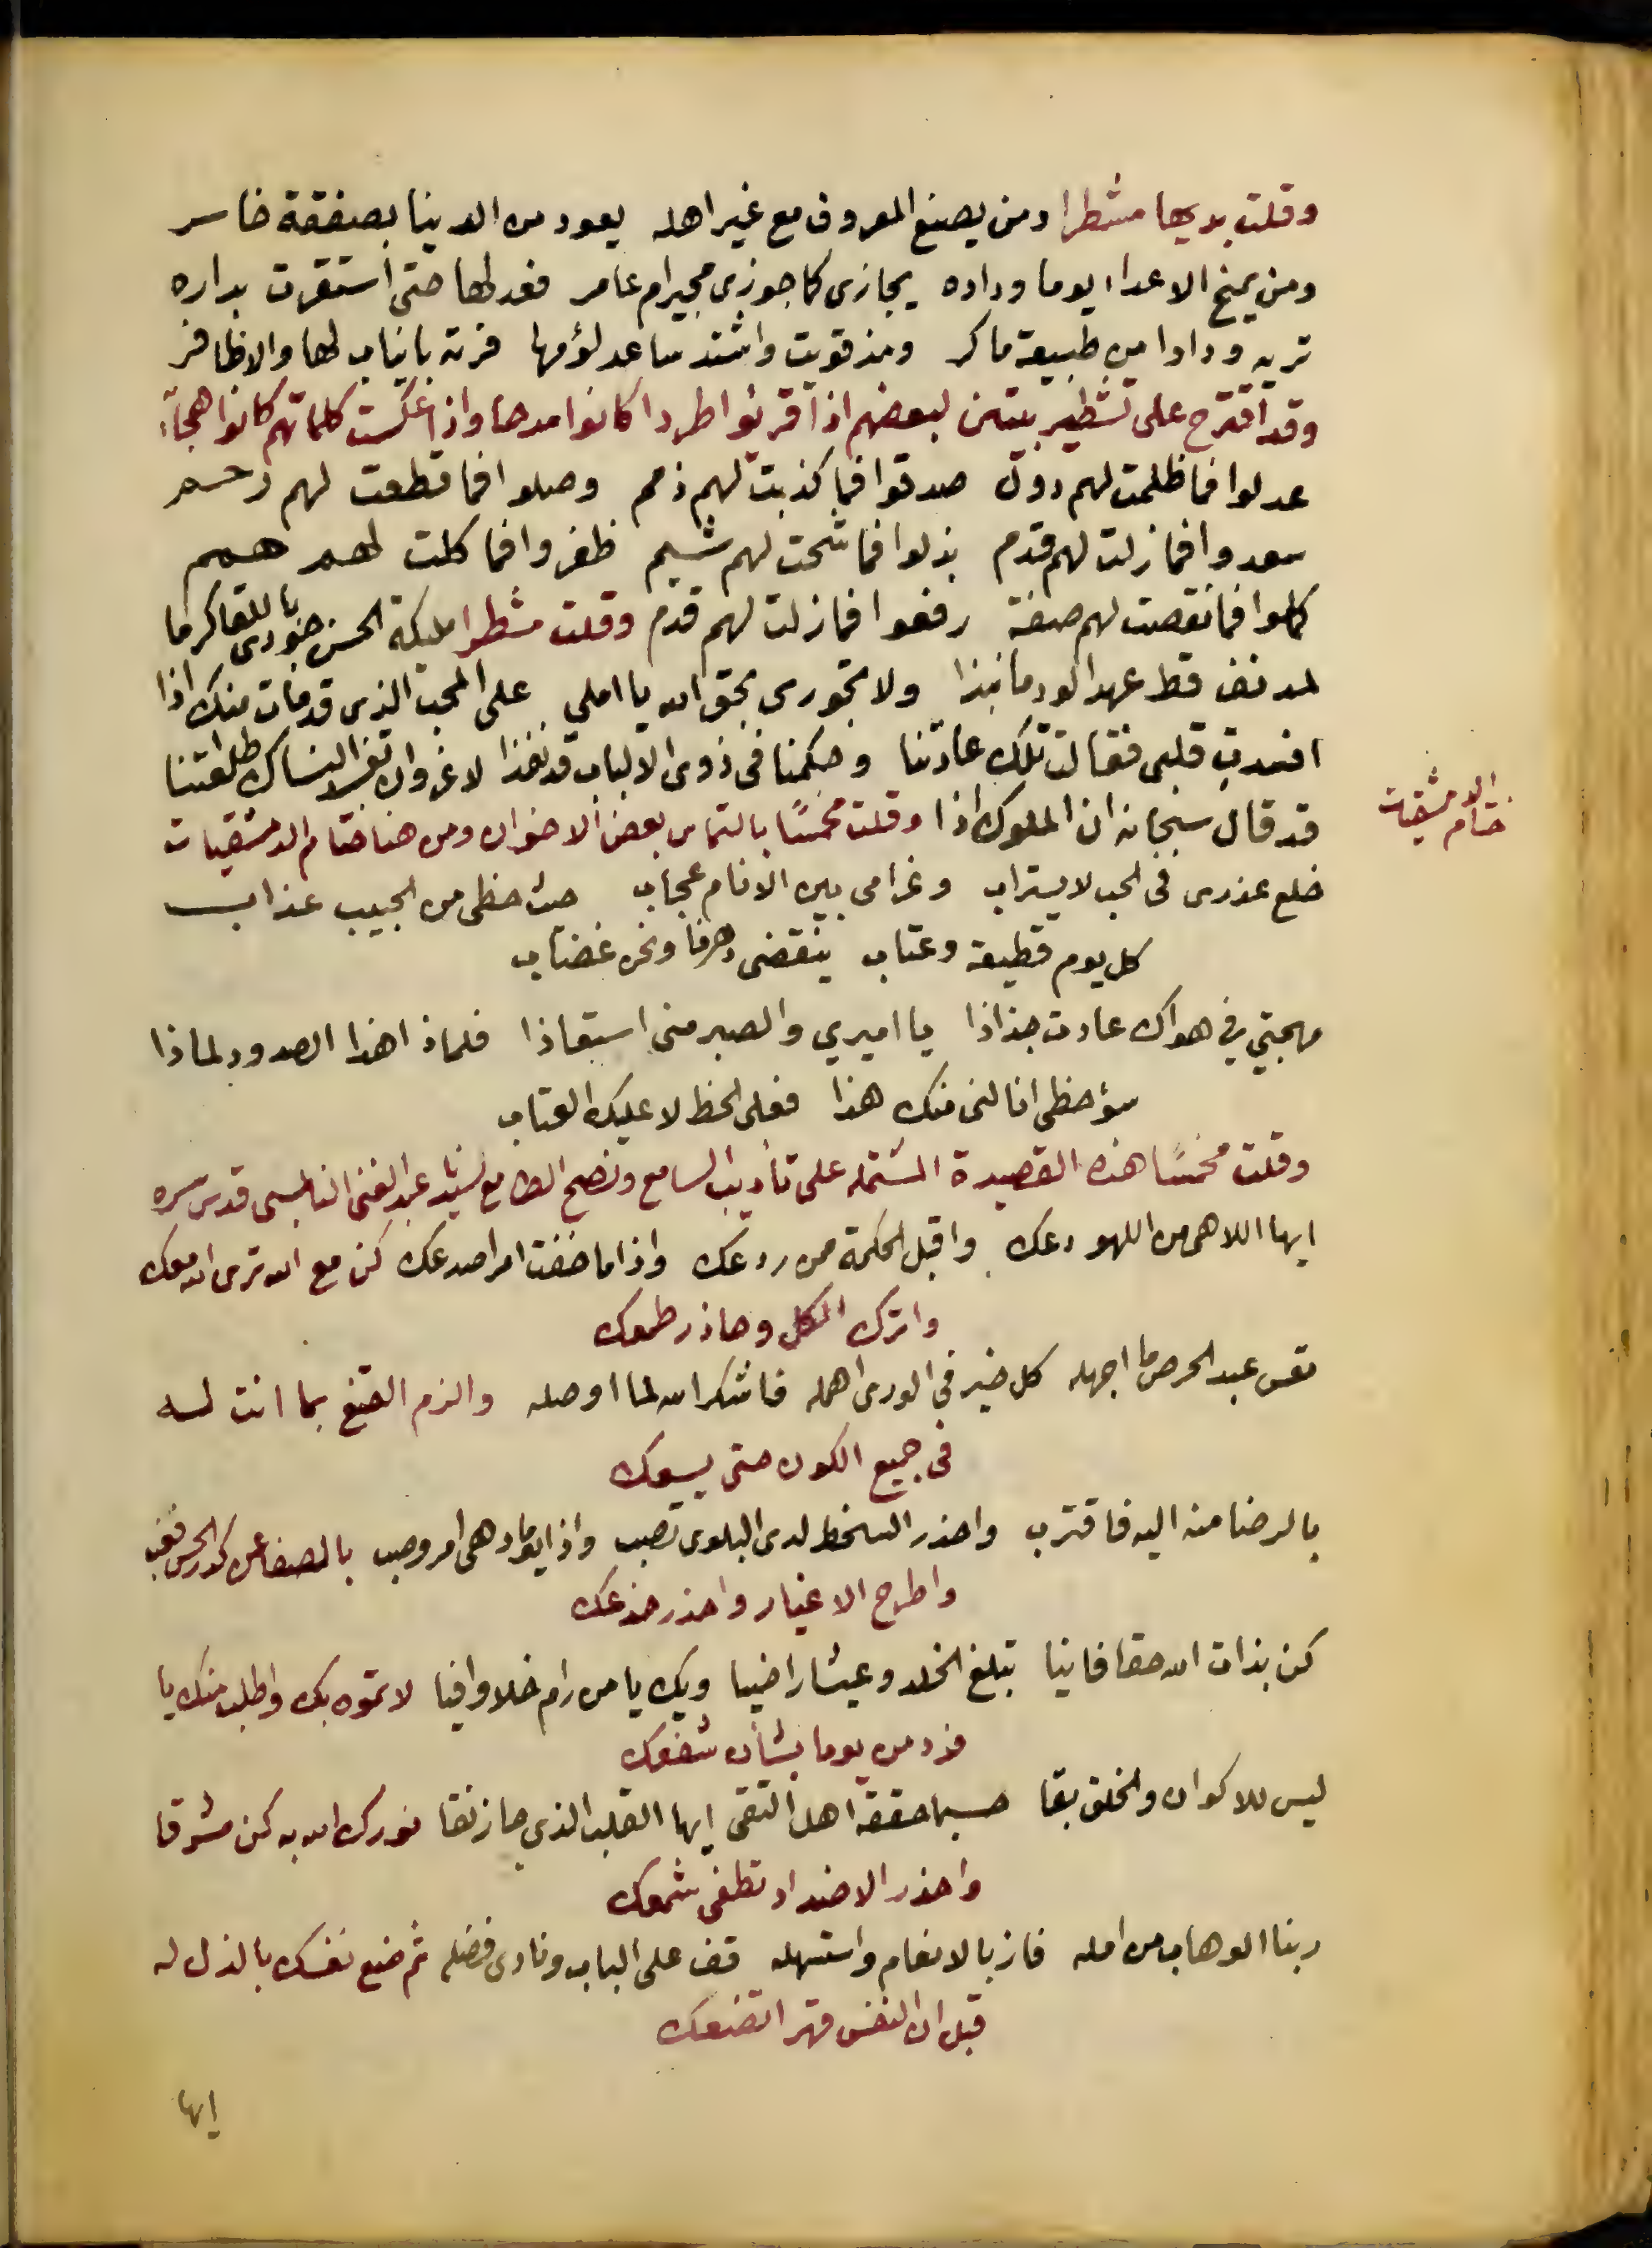 وقلت بديها مشطرا ومن يصنع المعروف مع غير اهله يعود من الدينا بصفقة خاسر
ومن يمنح الاعداء يوما وداده يجازى كما جوزى مجيرام عامر فعد لها حتى استقرت بداره
تريه ودادا من طبيعة ماكر ومذ قويت واشتد ساعد لؤمها فرته بانياب لها والاظافر
وقد اقترح على تشطير بيتين لبعضهم اذا قرئوا طردا كانوا مدحا واذا عكست كلماتهم كانوا هجآء
عدلوا فما ظلمت لهم دول صدقوا فما كذبت لهم ذمم وصلوا فما قطعت لهم رحم
سعدوا فما زلت لهم قدم بذلوا فما شحت لهم شيم ظفروا فما كلت لهم همم
كملوا فما نقصت لهم صفة رفعوا فما زلت لهم قدم وقلت مشطرا مليكة الحسن جودى باللقا كرما
لمدنف قط عهد الود ما نبذا ولا تجورى بحق الله يا املي على المحب الذى قد مات منك اذا
افسدت قلبى فقالت تلك عادتنا وحكمنا فى ذوى الالباب قد نفذا لا غرو ان تفسد النساك طلعتنا
قد قال سبحانه ان الملوك اذا وقلت مخمسًا بالتماس بعض الاخوان ومن هنا ختام الدمشقيات
ختام الدمشقيات
خلع عذرى فى الحب لا يستراب وغرامى بين الانام عجاب حيث حظى من الحبيب عذاب
كل يوم قطيعة وعتاب ينقضى دهرنا ونحن غضاب
مهجتي في هواك عادت جذاذا يا اميري والصبر منى استعاذا فلماذا هذا الصدود لماذا
سؤ حظى انالنى منك هذا فعلى الحظ لا عليك العتاب
وقلت مخمسًا هذه القصيدة المشتمله على تأديب السامع ونصح الطامع لسيدنا عبد الغنى النابلسى قدس سره
ايها اللاهى من اللهو دعك واقبل الحكمة ممن ردعك واذا ما خفت امرا صدعك كن مع الله ترى الله معك
واترك الكل وحاذر طمعك
تعس عبد الحرص ما اجهله كل خير فى الورى اهمله فاشكر الله لما اوصله والزم القنع بما انت له
فى جميع الكون حتى يسعك
بالرضا منه اليه فاقترب واحذر السخط لدى البلوى تصب واذا يوما دهى امر وصب بالصفا عن كدر الحس فغب
واطرح الاغيار واحذر خدعك
كن بذات الله حقا فانيا تبلغ الخلد وعيشا راضيا ويك يا من رام خلا وافيا لا تموه بك واطلب منك يا
فرد من يوما بشأن شفعك
ليس للاكوان والخلق بقا حسبما حققه اهل التقى ايها القلب الذي حاز نقا نورك الله به كن مشرقا
واحذر الاضداد تطفى شمعك
ربنا الوهاب من امله فاز بالانعام واستهله قف على الباب ونادى فضله ثم ضع نفسك بالذل له
قبل ان النفس قهرا تضعك
ايها